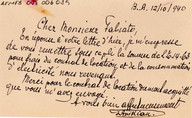 B.A. 12/10/940
Cher Monsieur Fabiato,
En réponse à votre lettre d'hier, je m'empresse
de vous remettre sous ce pli la somme de
pour frais du contrat de location et de la consommation
d'électricité nous revenant.
Merci pour le contrat de location dûment acquitté
que vous m'avez envoyé.
A vous bien affectueusement